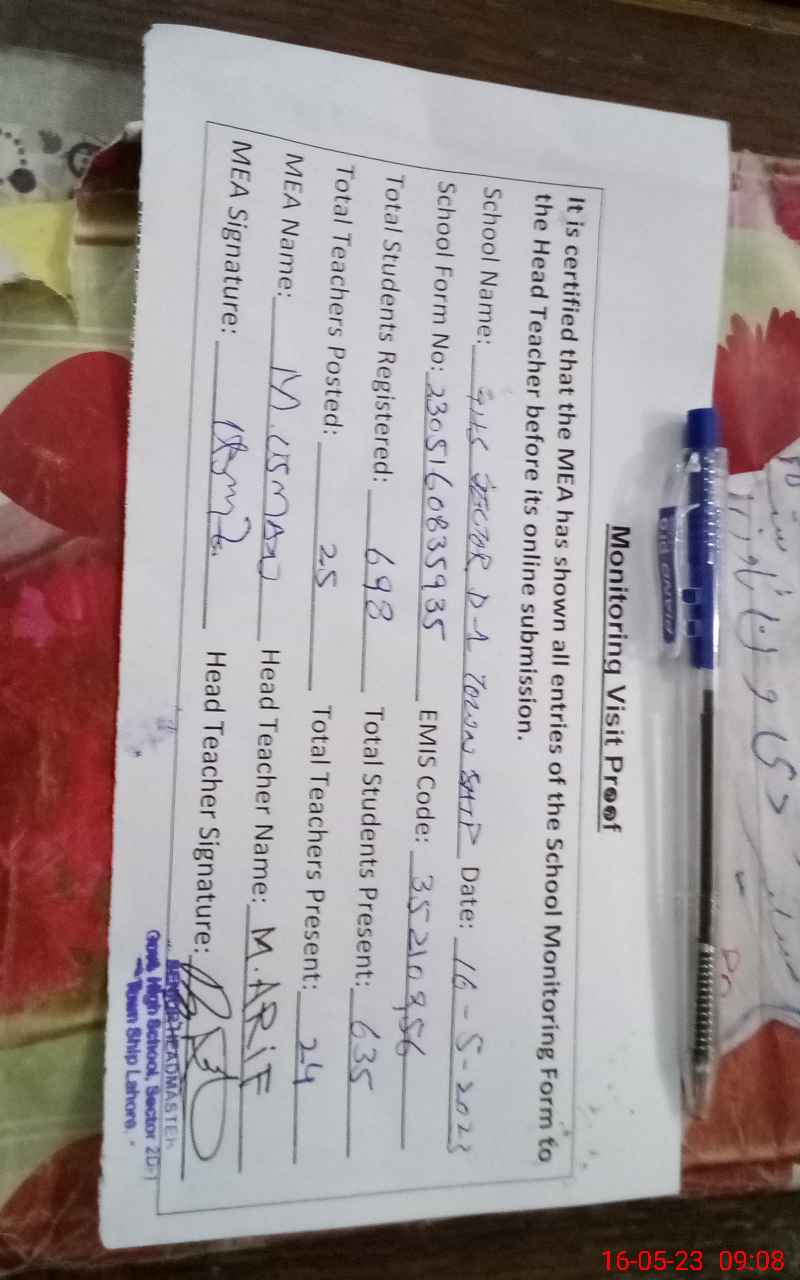 Monitoring Visit Proof
It is certified that the MEA has shown all entries of the School Monitoring Form to
the Head Teacher before its online submission.
School Name: GHS SECTOR D-1 TOWN SHIP Date: 16-5-2023
School Form No: 2305160835935 EMIS Code: 35210956
Total Students Registered: 698 Total Students Present: 635
Total Teachers Posted: 25 Total Teachers Present: 24
MEA Name: M. USMAN Head Teacher Name: M. ARIF
MEA Signature: Head Teacher Signature:
SENIOR HEADMASTER
Govt. High School, Sector 2D-1
Town Ship Lahore.
PIANO
16-05-23 09:08